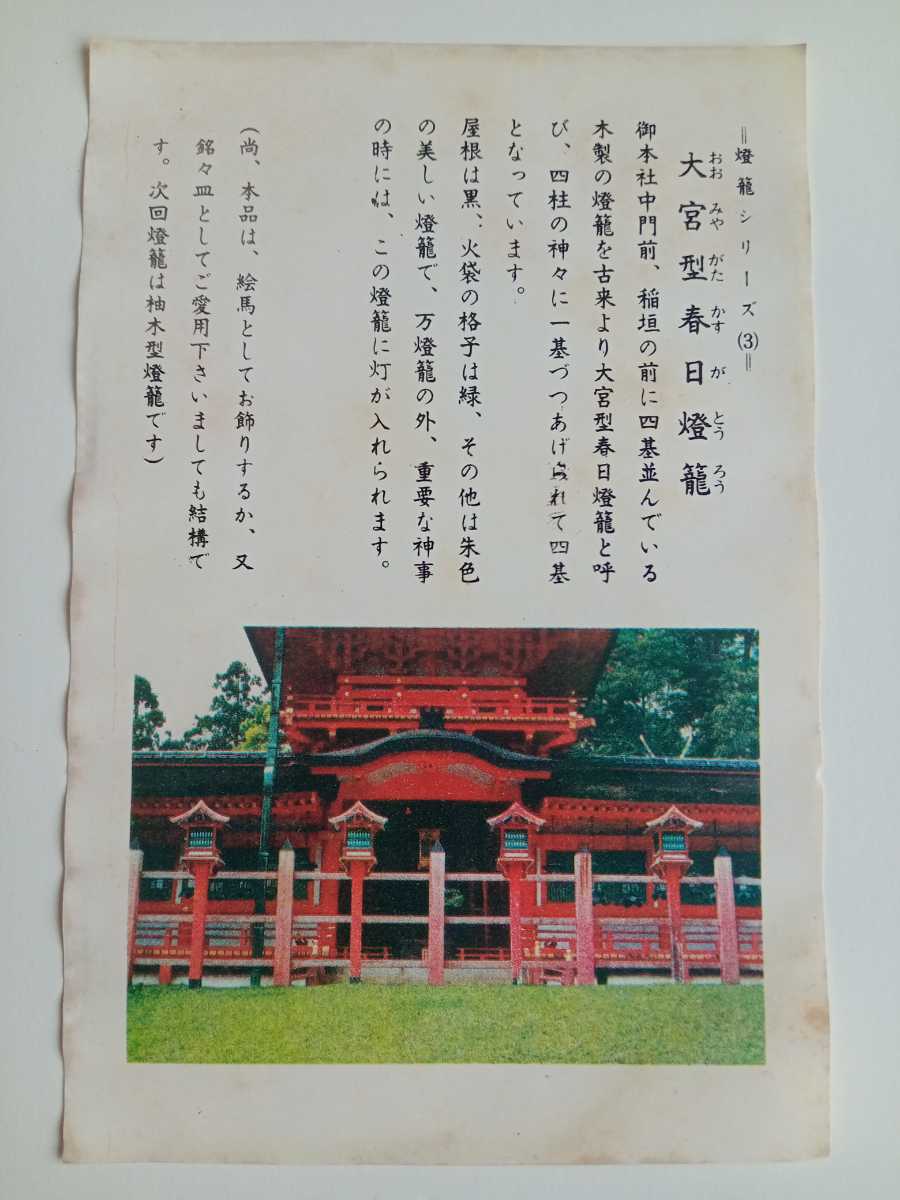 =燈籠シリーズ(3)=
大宮型春日燈籠
おおみやがたかすがとうろう
御本社中門前、稲垣の前に四基並んでいる
木製の燈籠を古来より大宮型春日燈籠と呼
び、四柱の神々に一基づつあげられて四基
となっています。
屋根は黒、火袋の格子は緑、その他は朱色
の美しい燈籠で、万燈籠の外、重要な神事
の時には、この燈籠に灯が入れられます。
(尚、本品は、絵馬としてお飾りするか、又
銘々皿としてご愛用下さいましても結構で
す。次回燈籠は柚木型燈籠です)